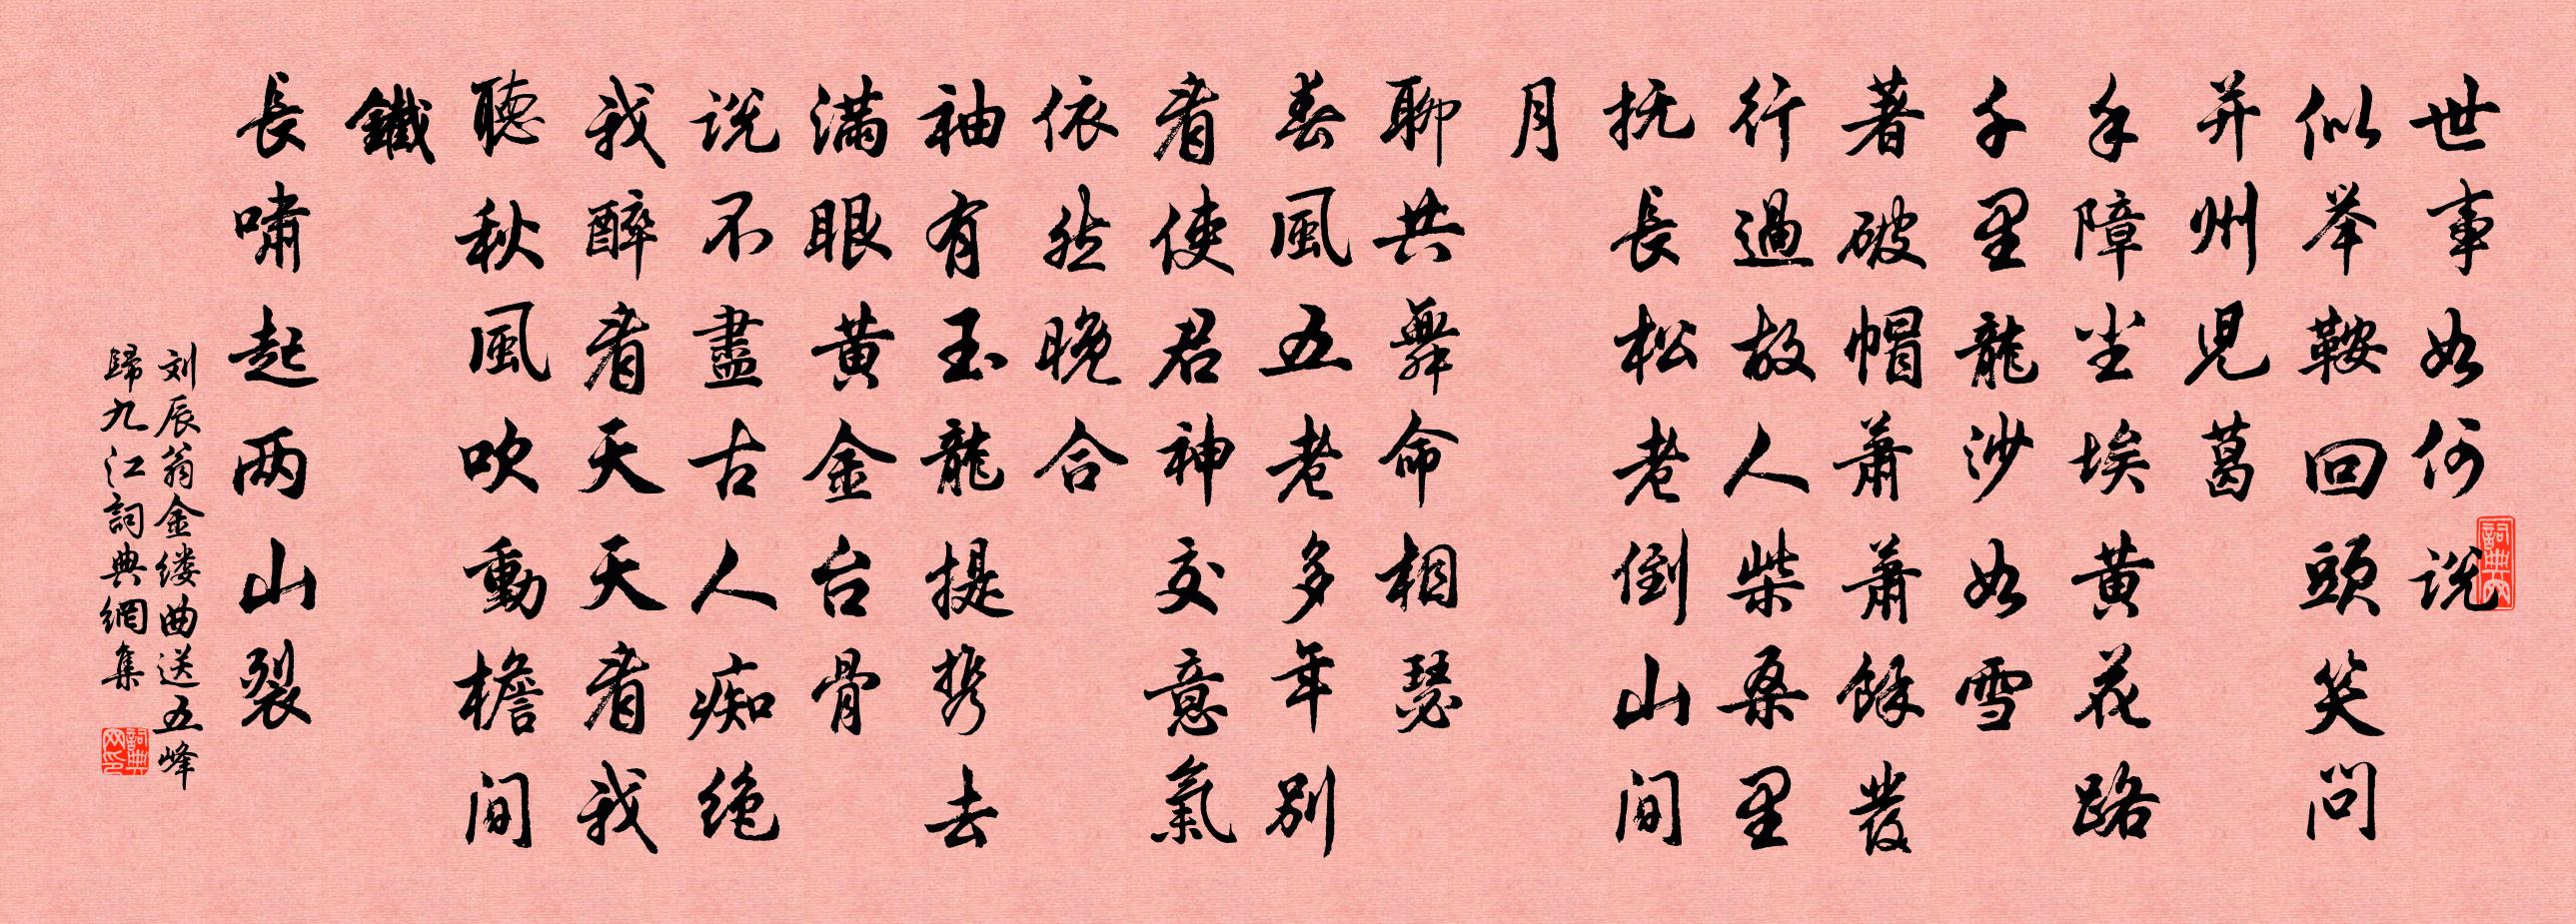 世事如何说
似举鞍回頭笑问
并州児葛
手障尘埃黄花路
千里龍沙如雪
著破帽萧萧餘發
行過故人柴桑里
抚長松老倒山间
月
聊共舞命相瑟
春風五老多年别
看使君神交意氣
依然晚合
袖有玉龍提携去
满眼黄金台骨
说不盡古人痴绝
我醉看天天看我
聽秋風吹動檐间
鐵
長啸起两山裂
刘辰翁金缕曲送五峰
歸九江詞典網集
詞典网
詞典网印